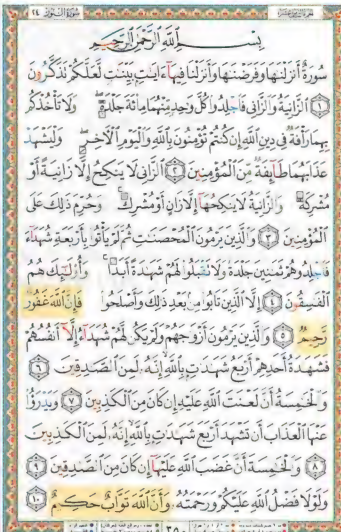 سُورَةُ النُّورِ ٢٤
بِسْمِ اللَّهِ الرَّحْمَٰنِ الرَّحِيمِ
سُورَةٌ أَنزَلْنَٰهَا وَفَرَضْنَٰهَا وَأَنزَلْنَا فِيهَآ ءَايَٰتٍۭ بَيِّنَٰتٍ لَّعَلَّكُمْ تَذَكَّرُونَ
١ ٱلزَّانِيَةُ وَٱلزَّانِى فَٱجْلِدُوا۟ كُلَّ وَٰحِدٍ مِّنْهُمَا مِا۟ئَةَ جَلْدَةٍ وَلَا تَأْخُذْكُم
بِهِمَا رَأْفَةٌ فِى دِينِ ٱللَّهِ إِن كُنتُمْ تُؤْمِنُونَ بِٱللَّهِ وَٱلْيَوْمِ ٱلْـَٔاخِرِ وَلْيَشْهَدْ
عَذَابَهُمَا طَآئِفَةٌ مِّنَ ٱلْمُؤْمِنِينَ ٢ ٱلزَّانِى لَا يَنكِحُ إِلَّا زَانِيَةً أَوْ
مُشْرِكَةً وَٱلزَّانِيَةُ لَا يَنكِحُهَآ إِلَّا زَانٍ أَوْ مُشْرِكٌ وَحُرِّمَ ذَٰلِكَ عَلَى
ٱلْمُؤْمِنِينَ ٣ وَٱلَّذِينَ يَرْمُونَ ٱلْمُحْصَنَٰتِ ثُمَّ لَمْ يَأْتُوا۟ بِأَرْبَعَةِ شُهَدَآءَ
فَٱجْلِدُوهُمْ ثَمَٰنِينَ جَلْدَةً وَلَا تَقْبَلُوا۟ لَهُمْ شَهَٰدَةً أَبَدًا وَأُو۟لَٰٓئِكَ هُمُ
ٱلْفَٰسِقُونَ ٤ إِلَّا ٱلَّذِينَ تَابُوا۟ مِنۢ بَعْدِ ذَٰلِكَ وَأَصْلَحُوا۟ فَإِنَّ ٱللَّهَ غَفُورٌ
رَّحِيمٌ ٥ وَٱلَّذِينَ يَرْمُونَ أَزْوَٰجَهُمْ وَلَمْ يَكُن لَّهُمْ شُهَدَآءُ إِلَّآ أَنفُسُهُمْ
فَشَهَٰدَةُ أَحَدِهِمْ أَرْبَعُ شَهَٰدَٰتٍۭ بِٱللَّهِ إِنَّهُۥ لَمِنَ ٱلصَّٰدِقِينَ ٦
وَٱلْخَٰمِسَةُ أَنَّ لَعْنَتَ ٱللَّهِ عَلَيْهِ إِن كَانَ مِنَ ٱلْكَٰذِبِينَ ٧ وَيَدْرَؤُا۟
عَنْهَا ٱلْعَذَابَ أَن تَشْهَدَ أَرْبَعَ شَهَٰدَٰتٍۭ بِٱللَّهِ إِنَّهُۥ لَمِنَ ٱلْكَٰذِبِينَ
٨ وَٱلْخَٰمِسَةَ أَنَّ غَضَبَ ٱللَّهِ عَلَيْهَآ إِن كَانَ مِنَ ٱلصَّٰدِقِينَ ٩
وَلَوْلَا فَضْلُ ٱللَّهِ عَلَيْكُمْ وَرَحْمَتُهُۥ وَأَنَّ ٱللَّهَ تَوَّابٌ حَكِيمٌ ١٠
٣٥٠